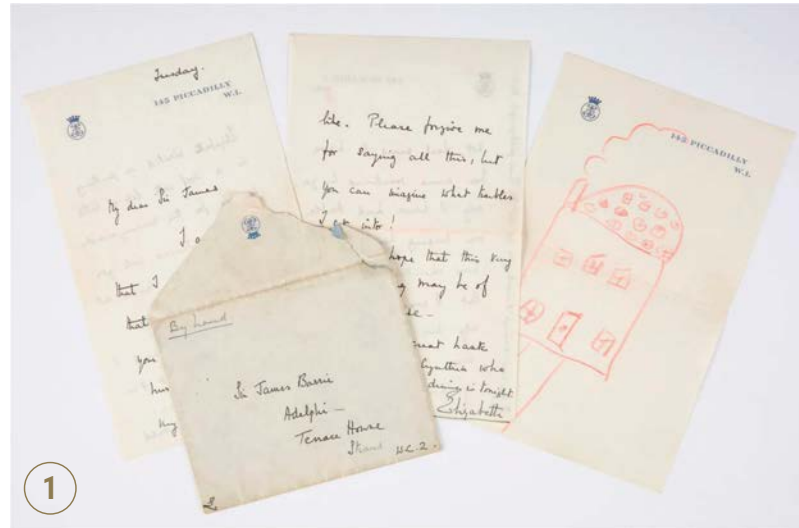 Tuesday.
145 PICCADILLY
W.1.
My dear Sir James
I
that I
that
you
my
like. Please forgive me
for saying all this, but
you can imagine what troubles
I am into!
hope that this very
may be of
great haste
Cynthia who
dining is tonight
Elizabeth
145 PICCADILLY
W.1.
By hand
Sir James Barrie
Adelphi –
Terrace House
Strand W.C.2.
1